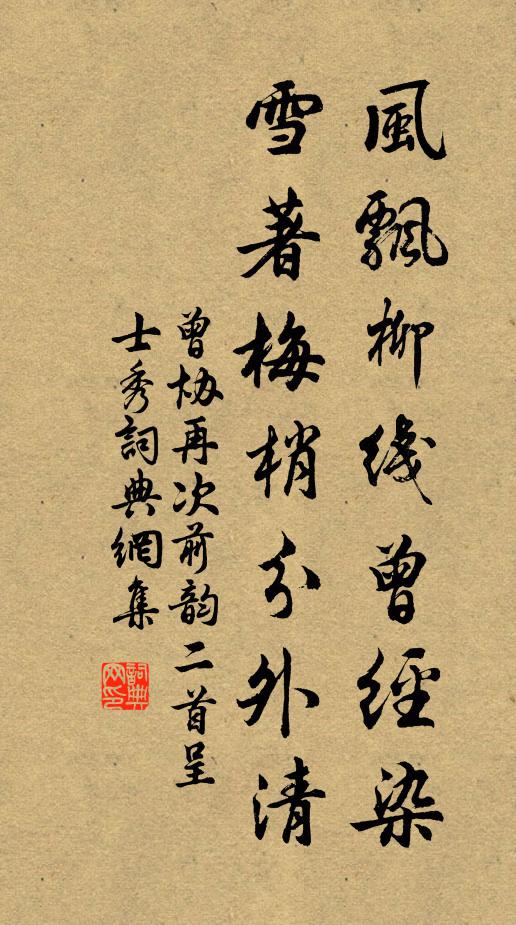 風飄柳綫曾經染
雪著梅梢分外清
曾协再次前韵二首呈
士秀詞典網集
詞典網印